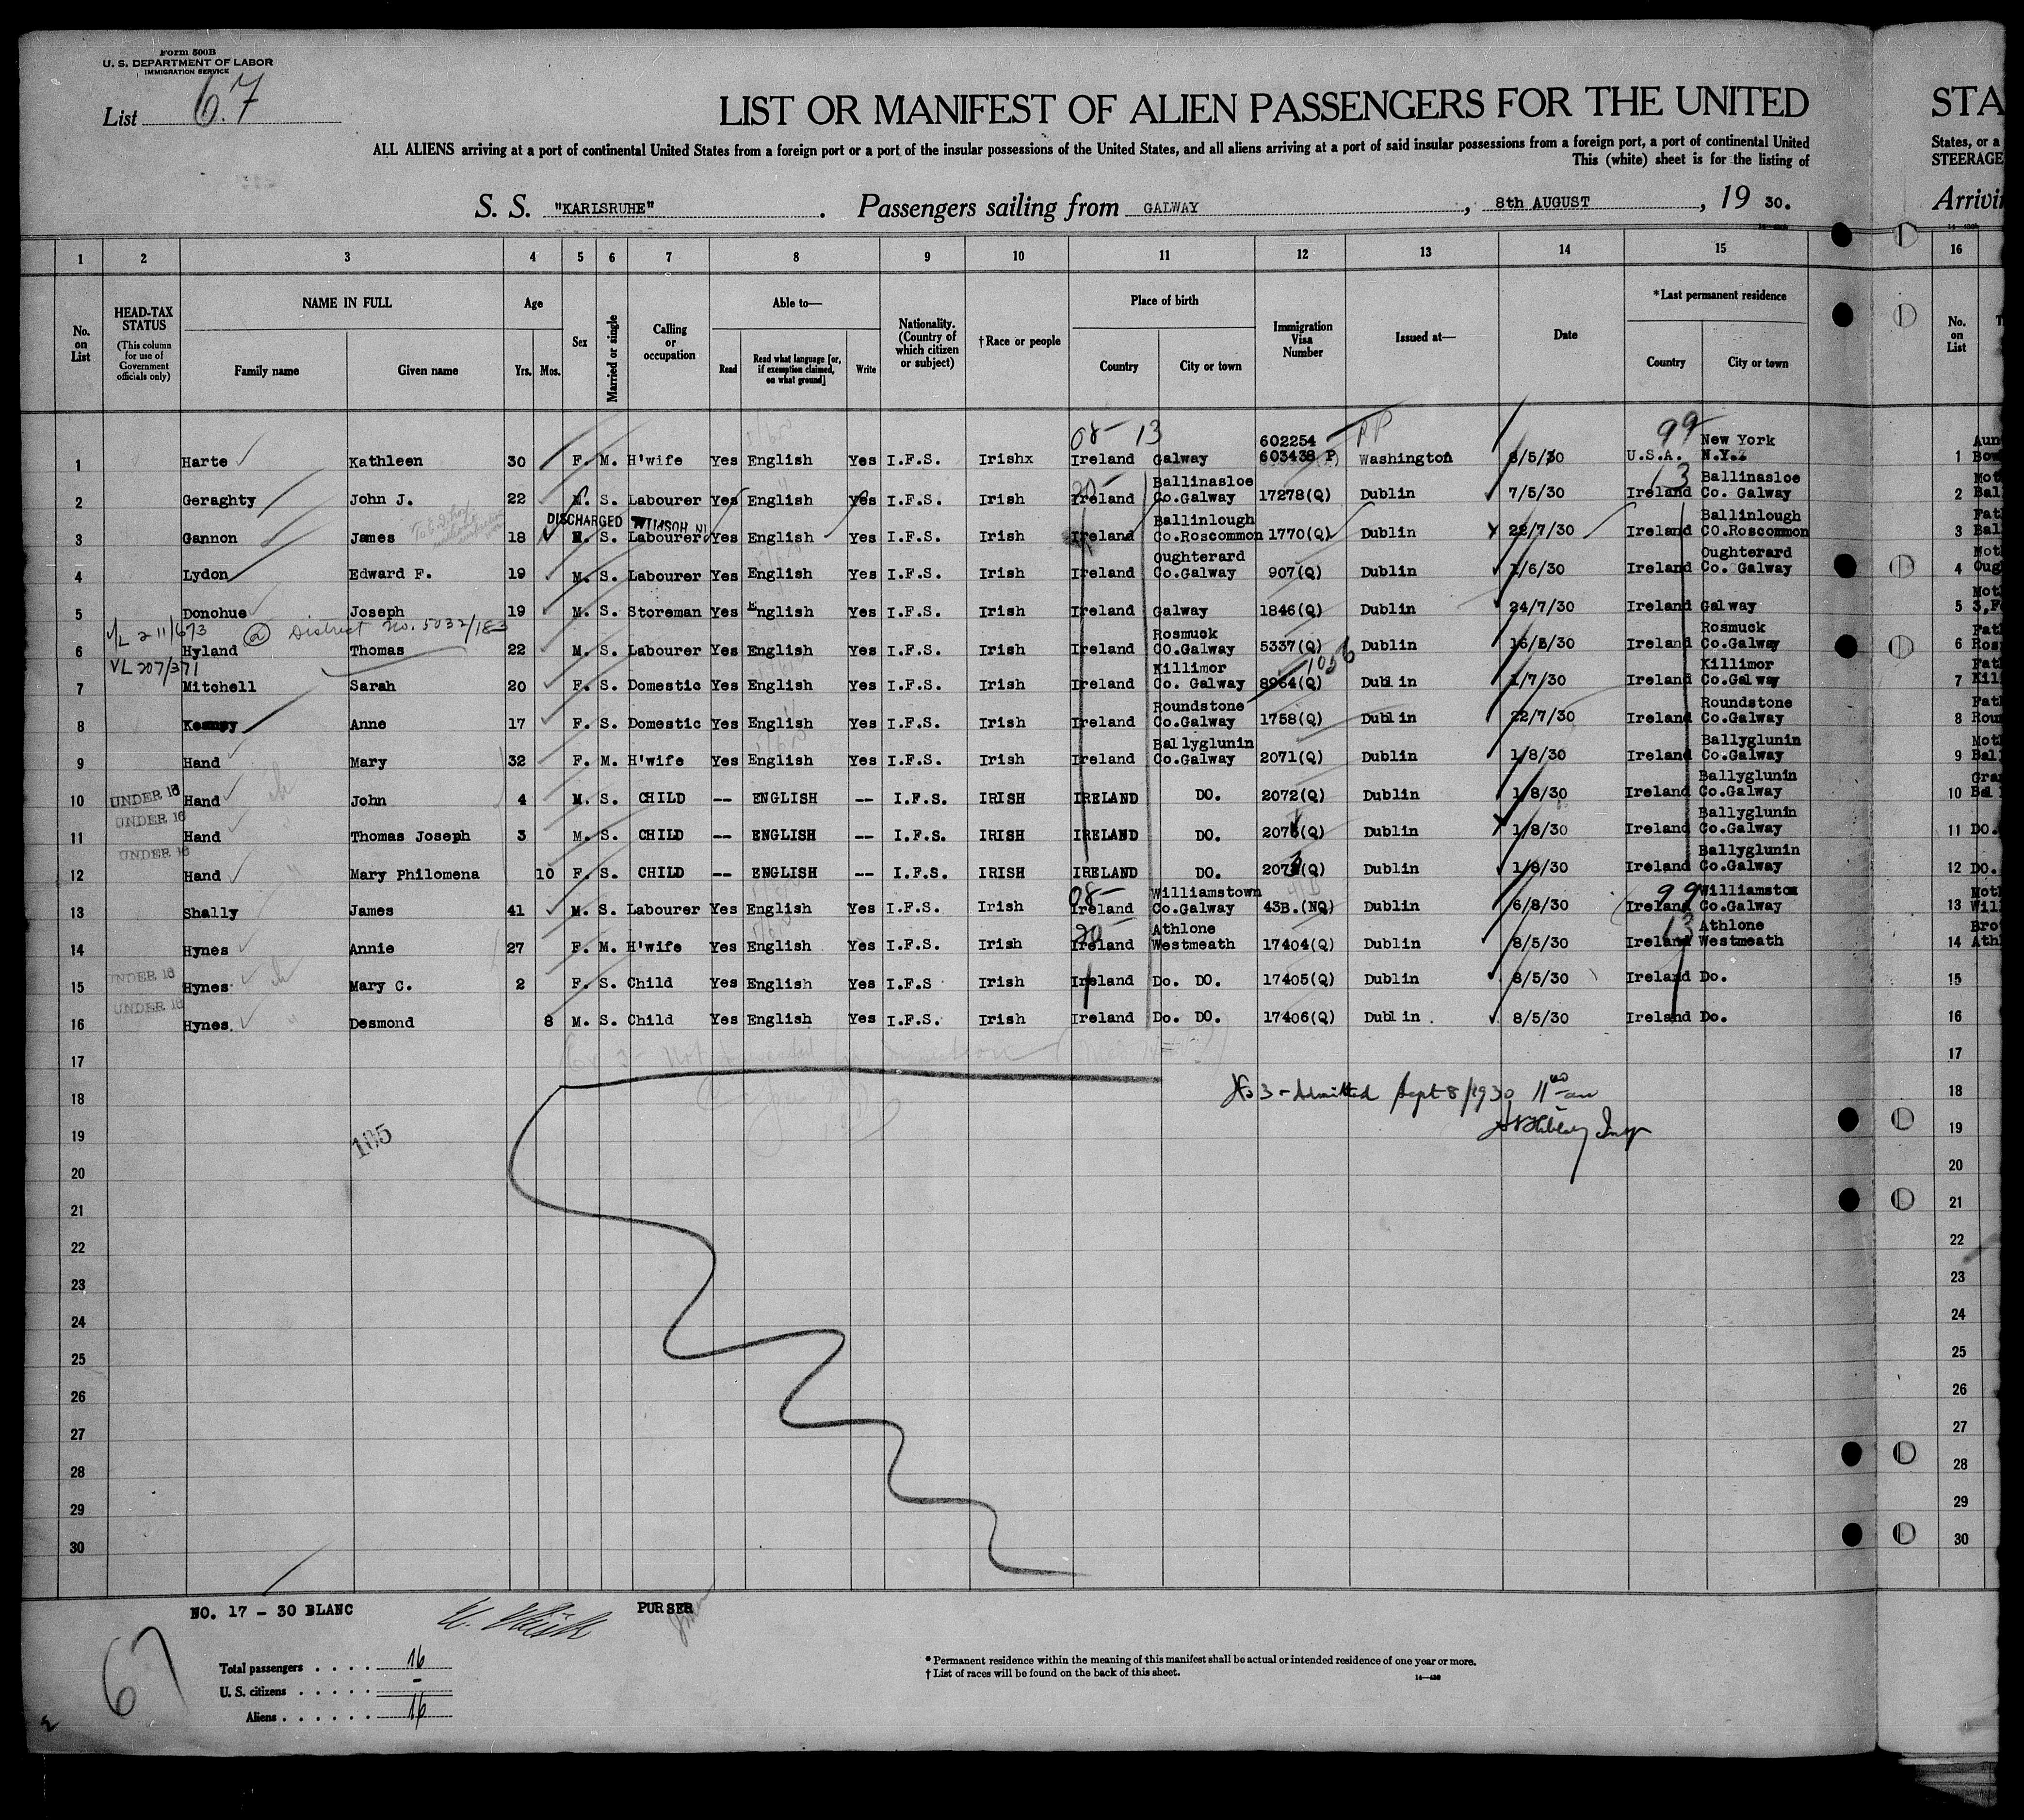 Form 500B
U. S. DEPARTMENT OF LABOR
IMMIGRATION SERVICE
List 67
LIST OR MANIFEST OF ALIEN PASSENGERS FOR THE UNITED
STA
ALL ALIENS arriving at a port of continental United States from a foreign port or a port of the insular possessions of the United States, and all aliens arriving at a port of said insular possessions from a foreign port, a port of continental United
States, or a
This (white) sheet is for the listing of
STEERAGE
S. S. "KARLSRUHE" . Passengers sailing from GALWAY , 8th AUGUST , 19 30.
Arrivi
1 2 3 4 5 6 7 8 9 10 11 12 13 14 15 16
No. on List
HEAD-TAX STATUS
(This column for use of Government officials only)
NAME IN FULL
Family name Given name
Age
Yrs. Mos.
Sex
Married or single
Calling or occupation
Able to—
Read
Read what language [or, if exemption claimed, on what ground]
Write
Nationality. (Country of which citizen or subject)
†Race or people
Place of birth
Country City or town
Immigration Visa Number
Issued at—
Date
*Last permanent residence
Country City or town
No. on List
08- 13 602254 PP 99 New York
1 Harte Kathleen 30 F. M. H'wife Yes English Yes I.F.S. Irishx Ireland Galway 603438 P Washington 8/5/30 U.S.A. N.Y. 1
20- Ballinasloe 13 Ballinasloe
2 Geraghty John J. 22 M. S. Labourer Yes English Yes I.F.S. Irish Ireland Co.Galway 17278(Q) Dublin 7/5/30 Ireland Co. Galway 2
DISCHARGED Ballinlough Ballinlough
3 Gannon James 18 M. S. Labourer Yes English Yes I.F.S. Irish Ireland Co.Roscommon 1770(Q) Dublin 22/7/30 Ireland CO.Roscommon 3
Oughterard Oughterard
4 Lydon Edward F. 19 M. S. Labourer Yes English Yes I.F.S. Irish Ireland Co.Galway 907(Q) Dublin 1/6/30 Ireland Co. Galway 4
5 Donohue Joseph 19 M. S. Storeman Yes English Yes I.F.S. Irish Ireland Galway 1846(Q) Dublin 24/7/30 Ireland Galway 5
V/L 211/673 District No. 5032/183 Rosmuck Rosmuck
6 Hyland Thomas 22 M. S. Labourer Yes English Yes I.F.S. Irish Ireland CO.Galway 5337(Q) Dublin 16/5/30 Ireland Co.Galway 6
VL 207/371 Killimor 1056 Killimor
7 Mitchell Sarah 20 F. S. Domestic Yes English Yes I.F.S. Irish Ireland Co. Galway 8964(Q) Dublin 1/7/30 Ireland Co.Galway 7
Roundstone Roundstone
8 Anne 17 F. S. Domestic Yes English Yes I.F.S. Irish Ireland Co.Galway 1758(Q) Dublin 22/7/30 Ireland Co.Galway 8
Ballyglunin Ballyglunin
9 Hand Mary 32 F. M. H'wife Yes English Yes I.F.S. Irish Ireland Co.Galway 2071(Q) Dublin 1/8/30 Ireland Co.Galway 9
Ballyglunin
10 UNDER 16 Hand John 4 M. S. CHILD -- ENGLISH -- I.F.S. IRISH IRELAND DO. 2072(Q) Dublin 1/8/30 Ireland Co.Galway 10
Ballyglunin
11 UNDER 16 Hand Thomas Joseph 3 M. S. CHILD -- ENGLISH -- I.F.S. IRISH IRELAND DO. Dublin 1/8/30 Ireland Co.Galway 11 DO.
Ballyglunin
12 UNDER 16 Hand Mary Philomena 10 F. S. CHILD -- ENGLISH -- I.F.S. IRISH IRELAND DO. Dublin 1/8/30 Ireland Co.Galway 12 DO.
08- Williamstown 99 Williamstow
13 Shally James 41 M. S. Labourer Yes English Yes I.F.S. Irish Ireland Co.Galway 43B.(NQ) Dublin 6/8/30 Ireland Co.Galway 13
20- Athlone 13 Athlone
14 Hynes Annie 27 F. M. H'wife Yes English Yes I.F.S. Irish Ireland Westmeath 17404(Q) Dublin 8/5/30 Ireland Westmeath 14
15 UNDER 16 Hynes Mary C. 2 F. S. Child Yes English Yes I.F.S Irish Ireland Do. DO. 17405(Q) Dublin 8/5/30 Ireland Do. 15
16 UNDER 16 Hynes. Desmond 8 M. S. Child Yes English Yes I.F.S. Irish Ireland Do. DO. 17406(Q) Dublin . 8/5/30 Ireland Do. 16
17 17
18 No 3 - Admitted Sept 8/1930 11 00 am 18
19 105 19
20 20
21 21
22 22
23 23
24 24
25 25
26 26
27 27
28 28
29 29
30 30
NO. 17 - 30 BLANC PURSER
67
Total passengers . . . . 16
U. S. citizens . . . . . -
Aliens . . . . . . 16
* Permanent residence within the meaning of this manifest shall be actual or intended residence of one year or more.
† List of races will be found on the back of this sheet.